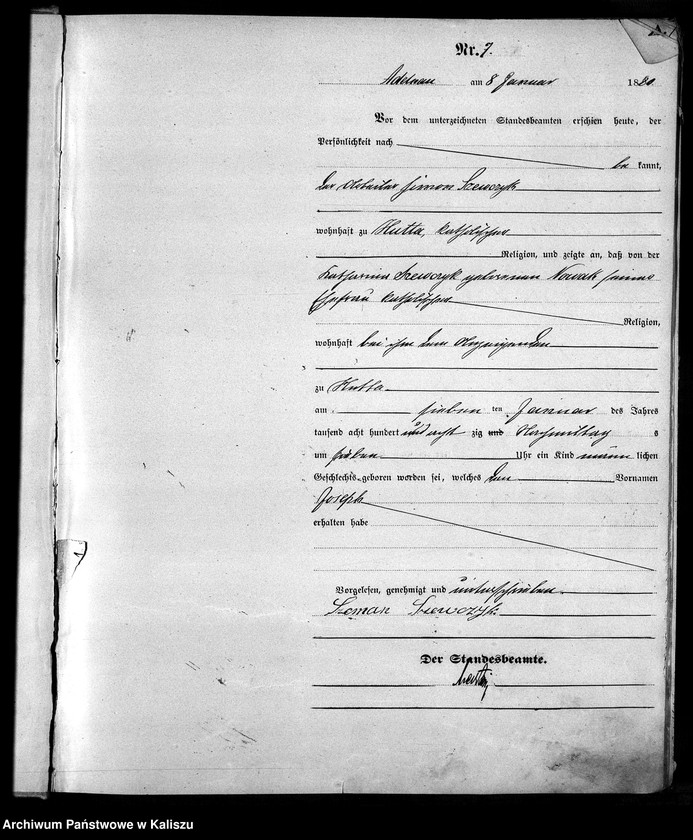 Nr. 7.
Adelnau am 8 Januar 1880.
Vor dem unterzeichneten Standesbeamten erschien heute, der
Persönlichkeit nach
be kannt,
der Arbeiter Simon Szewczyk
wohnhaft zu Hutta, katholischer
Religion, und zeigte an, daß von der
Katharina Szewczyk geborenen Nowak seiner
Ehefrau katholischer
Religion,
wohnhaft bei ihm dem Anzeigenden
zu Hutta
am sieben ten Januar des Jahres
tausend acht hundert und acht zig und Nachmittag s
um sieben Uhr ein Kind männ lichen
Geschlechts geboren worden sei, welches den Vornamen
Joseph
erhalten habe
Vorgelesen, genehmigt und unterschrieben
Szeman Szewczyk
Der Standesbeamte.
Archiwum Państwowe w Kaliszu